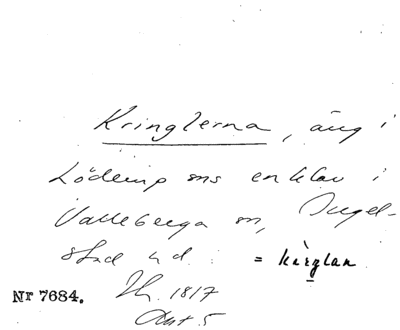 Kringlerna, äng i
Löderup sns enklav i
Valleberga sn, Ingel-
stad hd. = kärglan
Nr 7684. 1817
Akt 5